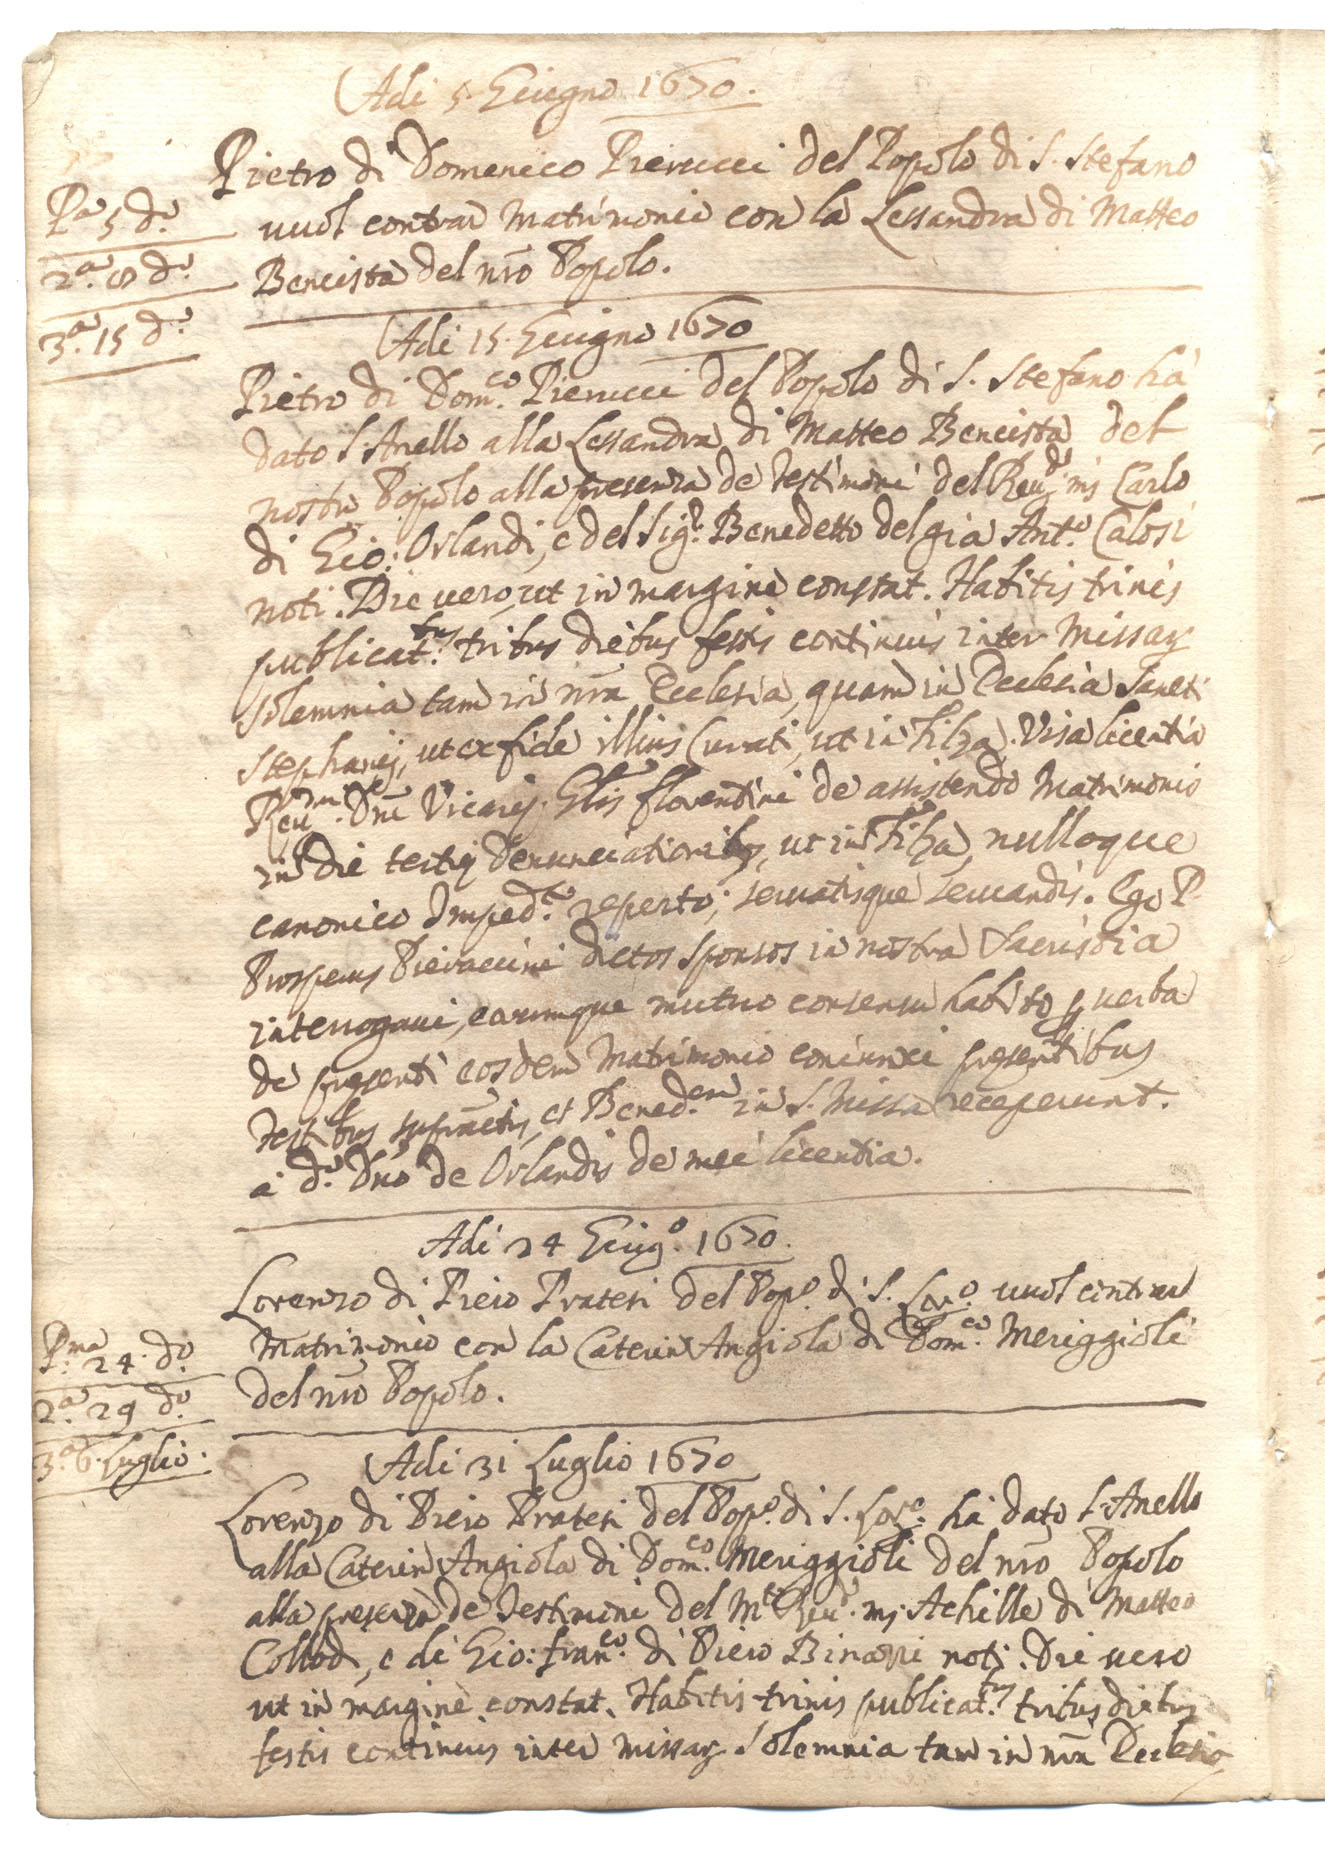 Adi 5 Giugno 1670.
Pietro di Domenico Pierucci del Popolo di S. Stefano
vuol contrar Matrimonio con la Lessandra di Matteo
Bencistà del nr̃o Popolo.
Pa 5 do.
2a. 8 do.
3a. 15 do.
Adi 15. Giugno 1670
Pietro di Domco. Pierucci del Popolo di S. Stefano hà
dato l'Anello alla Lessandra di Matteo Bencistà del
nostro Popolo alla presenza de Testimoni del Reudo. mj Carlo
di Gio: Orlandi, e del Sigr. Benedetto del già Anto. Calosi
noti. Die uero, ut in margine constat. Habitis trinis
publicat.bus tribus diebus festis continuis inter Missarz
solemnia tam in nr̃a Ecclesia, quam in Ecclesia Sancti
Stephanij, ut ex fide illius Curati, ut in Filza. Visa licentia
Reumi. Dni Vicarij Glis florentini de assistendo Matrimonio
in die tertię denunciationis, ut in Filza, nulloque
canonico Impedto. reperto; seruatisque seruandis. Ego P.
Prosperus Pieraccini dictos sponsos in nostra Sacristia
interrogaui, eorumque mutuo consensu habito ꝑ uerba
de presenti eosdem Matrimonio coniunxi presentibus
Testibus supradictis, et Bened.em in S. Missa receperunt.
a do. Dno de Orlandis de mei licentia.
Adi 24 Giugo. 1670.
Lorenzo di Piero Prateri del Popo. di S. Loro. vuol contrar
Matrimonio con la Caterin'Angiola di Domco. Meriggioli
del nr̃o Popolo.
Pma. 24. do.
2a. 29 do.
3a. 6. Luglio.
Adi 31 Luglio 1670
Lorenzo di Piero Prateri del Popo. di S. Loro. hà dato l'Anello
alla Caterin'Angiola di Domco. Meriggioli del nr̃o Popolo
alla presenza de Testimoni del Mto Reudo. mj. Achille di Matteo
Collodi, e di Gio: Franco. di Piero noti. Die uero
ut in margine constat. Habitis trinis publicat.bus tribus diebus
festis continuis inter missarz solemnia tam in nr̃a Ecclesia,